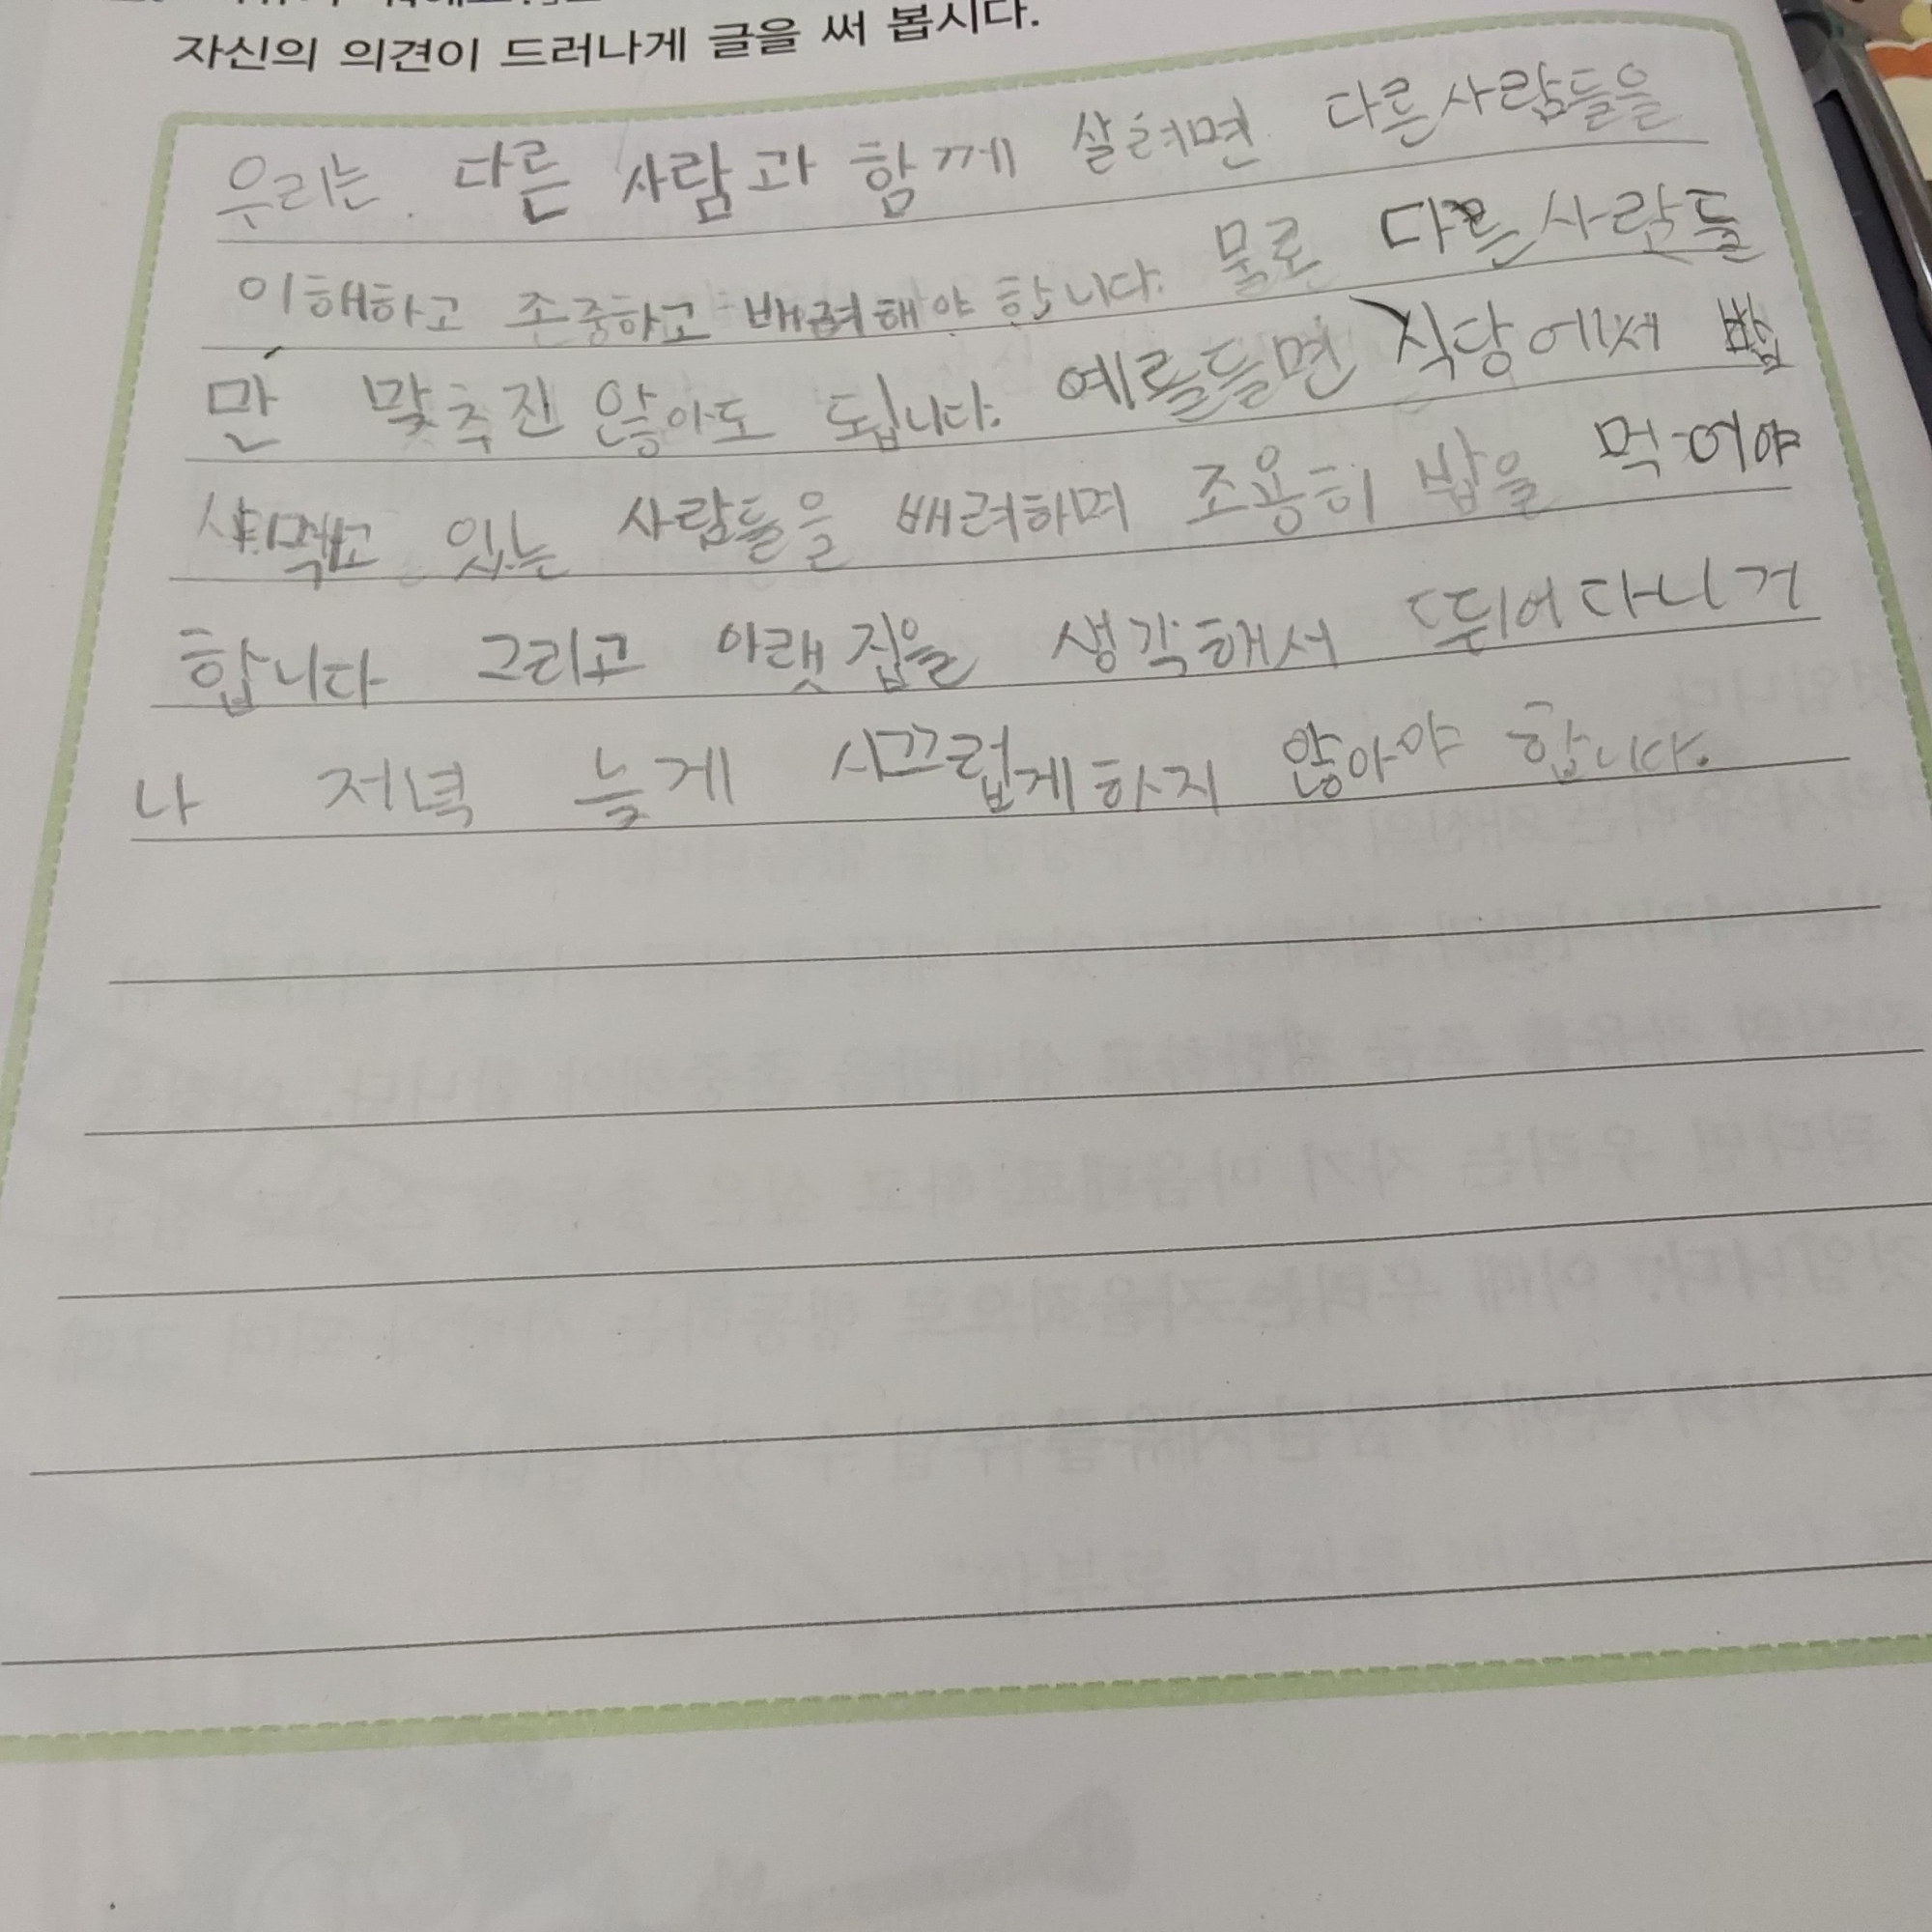 자신의 의견이 드러나게 글을 써 봅시다.
우리는 다른 사람과 함께 살려면 다른사람들을
이해하고 존중하고 배려해야 합니다. 물로 다른사람들
만 맞추진 않아도 됩니다. 예를들면 식당에서 밥
먹고 있는 사람들을 배려하며 조용히 밥을 먹어야
합니다 그리고 아랫집을 생각해서 뛰어다니거
나 저녁 늦게 시끄럽게하지 않아야 합니다.